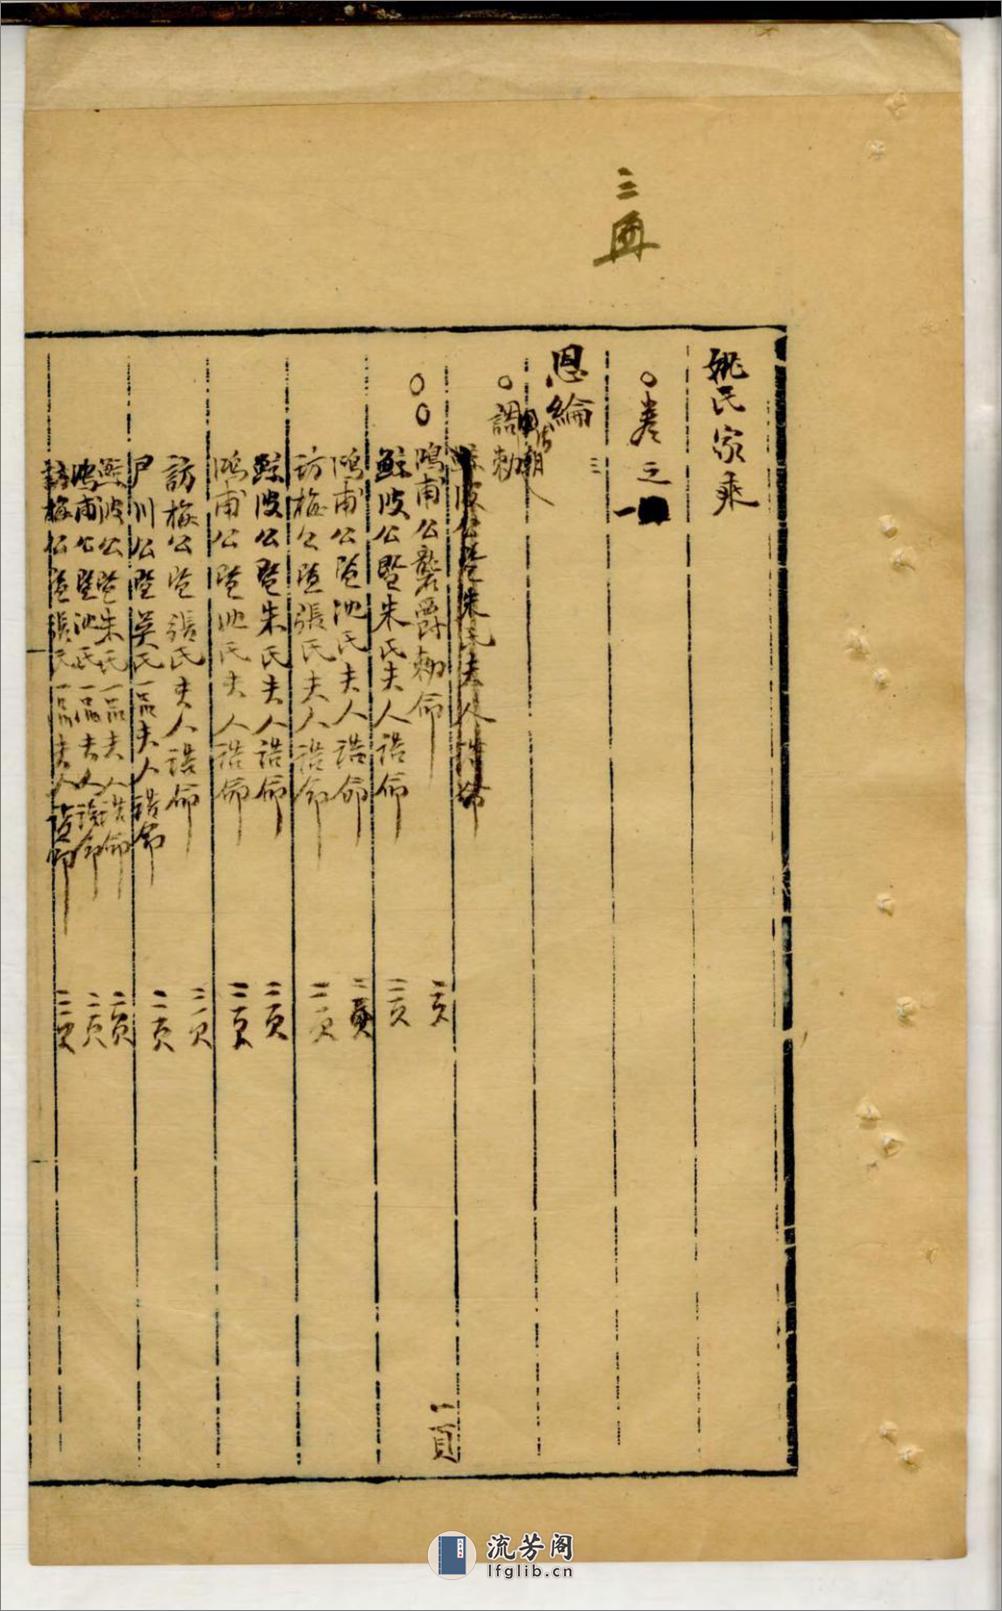 姚氏家乘
卷之一
恩綸
誥勅
鴻甫公襲爵勅命 二頁
鯨波公暨朱氏夫人誥命 二頁
鴻甫公暨沈氏夫人誥命 二頁
訪梅公暨張氏夫人誥命 二頁
鯨波公暨朱氏夫人誥命 二頁
鴻甫公暨沈氏夫人誥命 二頁
訪梅公暨張氏夫人誥命 二頁
尸川公暨吳氏一品夫人誥命 二頁
鯨波公暨朱氏一品夫人誥命 二頁
鴻甫公暨沈氏一品夫人誥命 二頁
訪梅公暨張氏一品夫人誥命 二頁
流芳阁
lfglib.cn